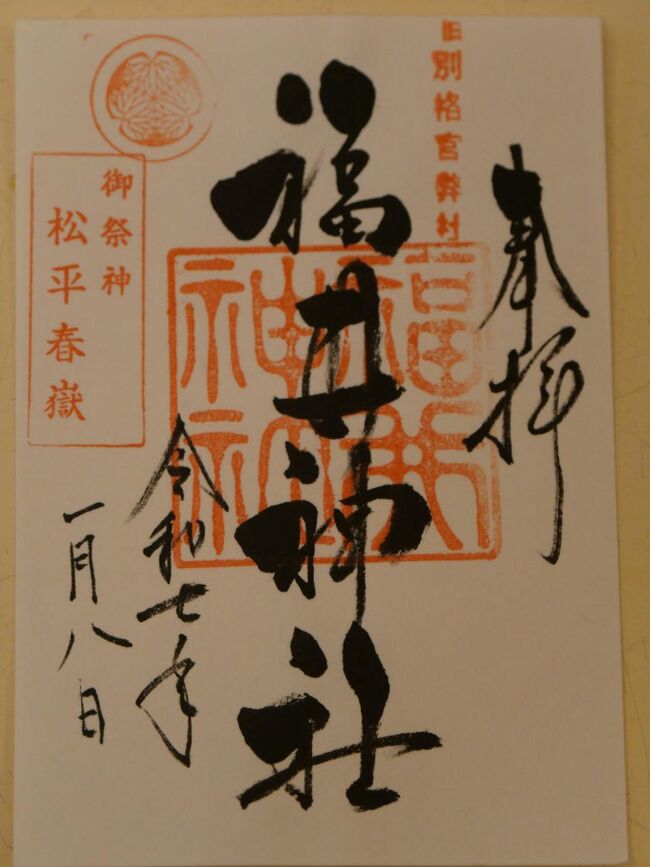 奉拝
旧別格官弊社
福井神社
令和七年
一月八日
御祭神
松平春嶽